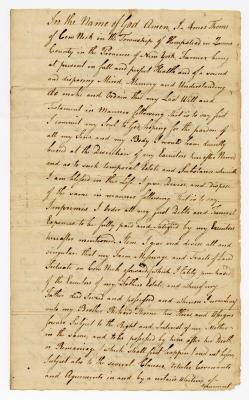 In the Name of God Amen. I Amos Thorne
of Cow Neck in the Township of Hempstead in Queens
County in the Province of New York Farmer being
at present in full and perfect Health and of a sound
and disposing Mind, Memory and Understanding
do make and Ordain this my Last Will and
Testament in Manner following that is to say first
I commit my Soul to God hoping for the pardon of
all my Sins and my Body I would have decently
buried at the Discretion of my Executors hereafter Named
and as to such temporal Estate and Substance wherewith
I am blessed in this Life I give Devise and dispose
of the same in manner following that is to say
Imprimis I order all my just Debts and Funeral
Expences to be fully paid and satisfied by my Executors
hereafter mentioned. Item I give and devise all and
singular that my Farm Messuage and Tracts of Land
Situate on Cow Neck aforesaid which I lately purchased
of the Executors of my Fathers Estate and whereof my
Father died Seized and possessed and whereon I now live
unto my Brother Richard Thorne his Heirs and Assigns
forever Subject to the Right and Interest of my Mother
in the Same, and to be possessed by him after her Death
or Remarriage (which Shall first happen) and not before
Subject also to the several Clauses Articles Covenants
and Agreements in and by a certain Writing of